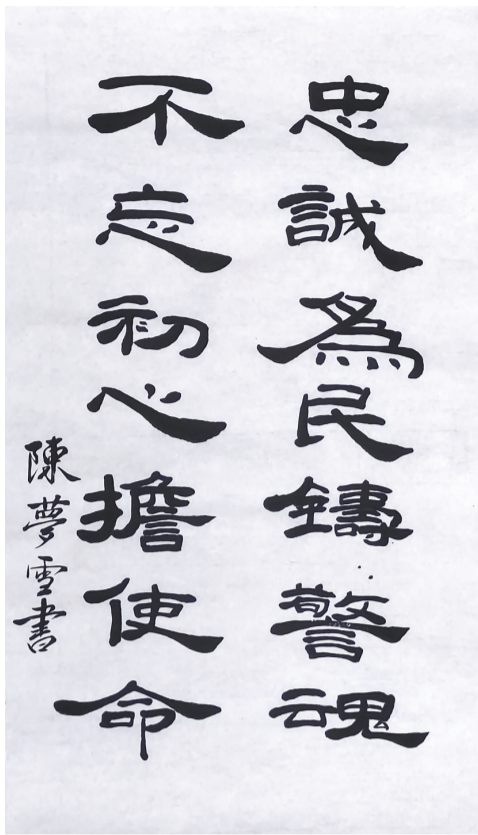 忠誠爲民鑄警魂
不忘初心擔使命
陳夢雪書